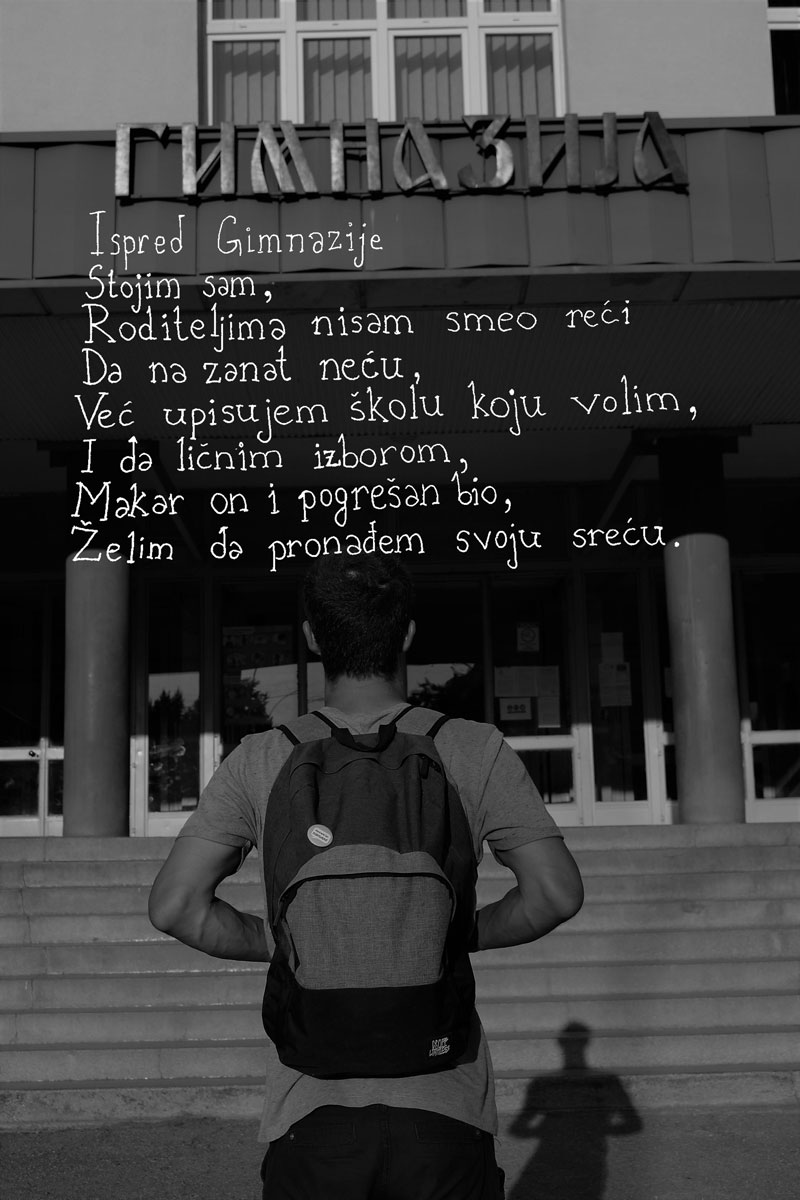 ГИМНАЗИЈА
Ispred Gimnazije
Stojim sam,
Roditeljima nisam smeo reći
Da na zanat neću,
Već upisujem školu koju volim,
I da ličnim izborom,
Makar on i pogrešan bio,
Želim da pronađem svoju sreću.